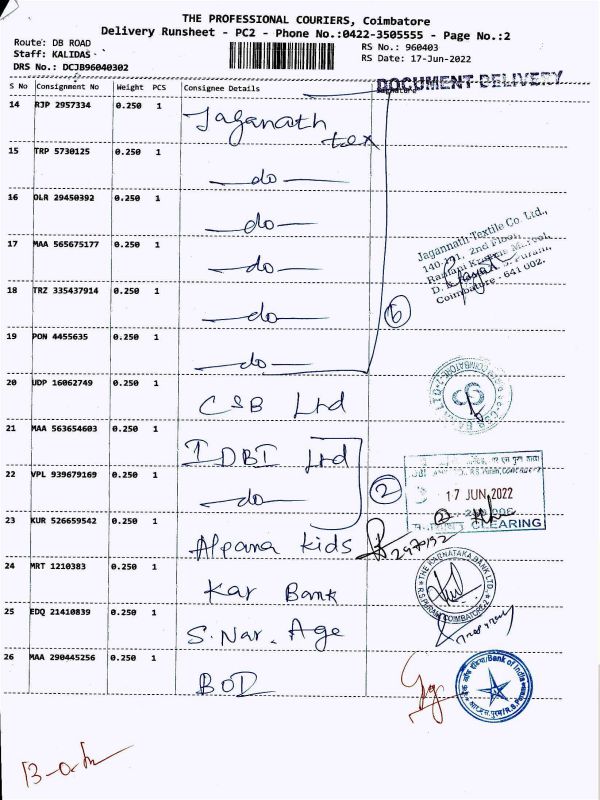 THE PROFESSIONAL COURIERS, Coimbatore
Delivery Runsheet - PC2 - Phone No.:0422-3505555 - Page No.:2
Route: DB ROAD
RS No.: 960403
Staff: KALIDAS
RS Date: 17-Jun-2022
DRS No.: DCJB96040302
DOCUMENT DELIVERY
S No Consignment No Weight PCS Consignee Details Signature
14 RJP 2957334 0.250 1 Jaganath tex
15 TRP 5730125 0.250 1 do
16 OLR 29450392 0.250 1 do
17 MAA 565675177 0.250 1 do
Jagannath Textile Co Ltd.,
140-191, 2nd Floor,
Coimbatore - 641 002.
18 TRZ 335437914 0.250 1 do
6
19 PON 4455635 0.250 1 do
20 UDP 16062749 0.250 1 CSB Ltd
21 MAA 563654603 0.250 1 IDBI Ltd
22 VPL 939679169 0.250 1 do
2
17 JUN 2022
CLEARING
23 KUR 526659542 0.250 1 Alpana kids
24 MRT 1210383 0.250 1 Kar Bank
THE KARNATAKA BANK LTD.
R.S. PURAM, COIMBATORE-2
25 EDQ 21410839 0.250 1 S. Nar. Age
26 MAA 290445256 0.250 1 BOD
Bank of India